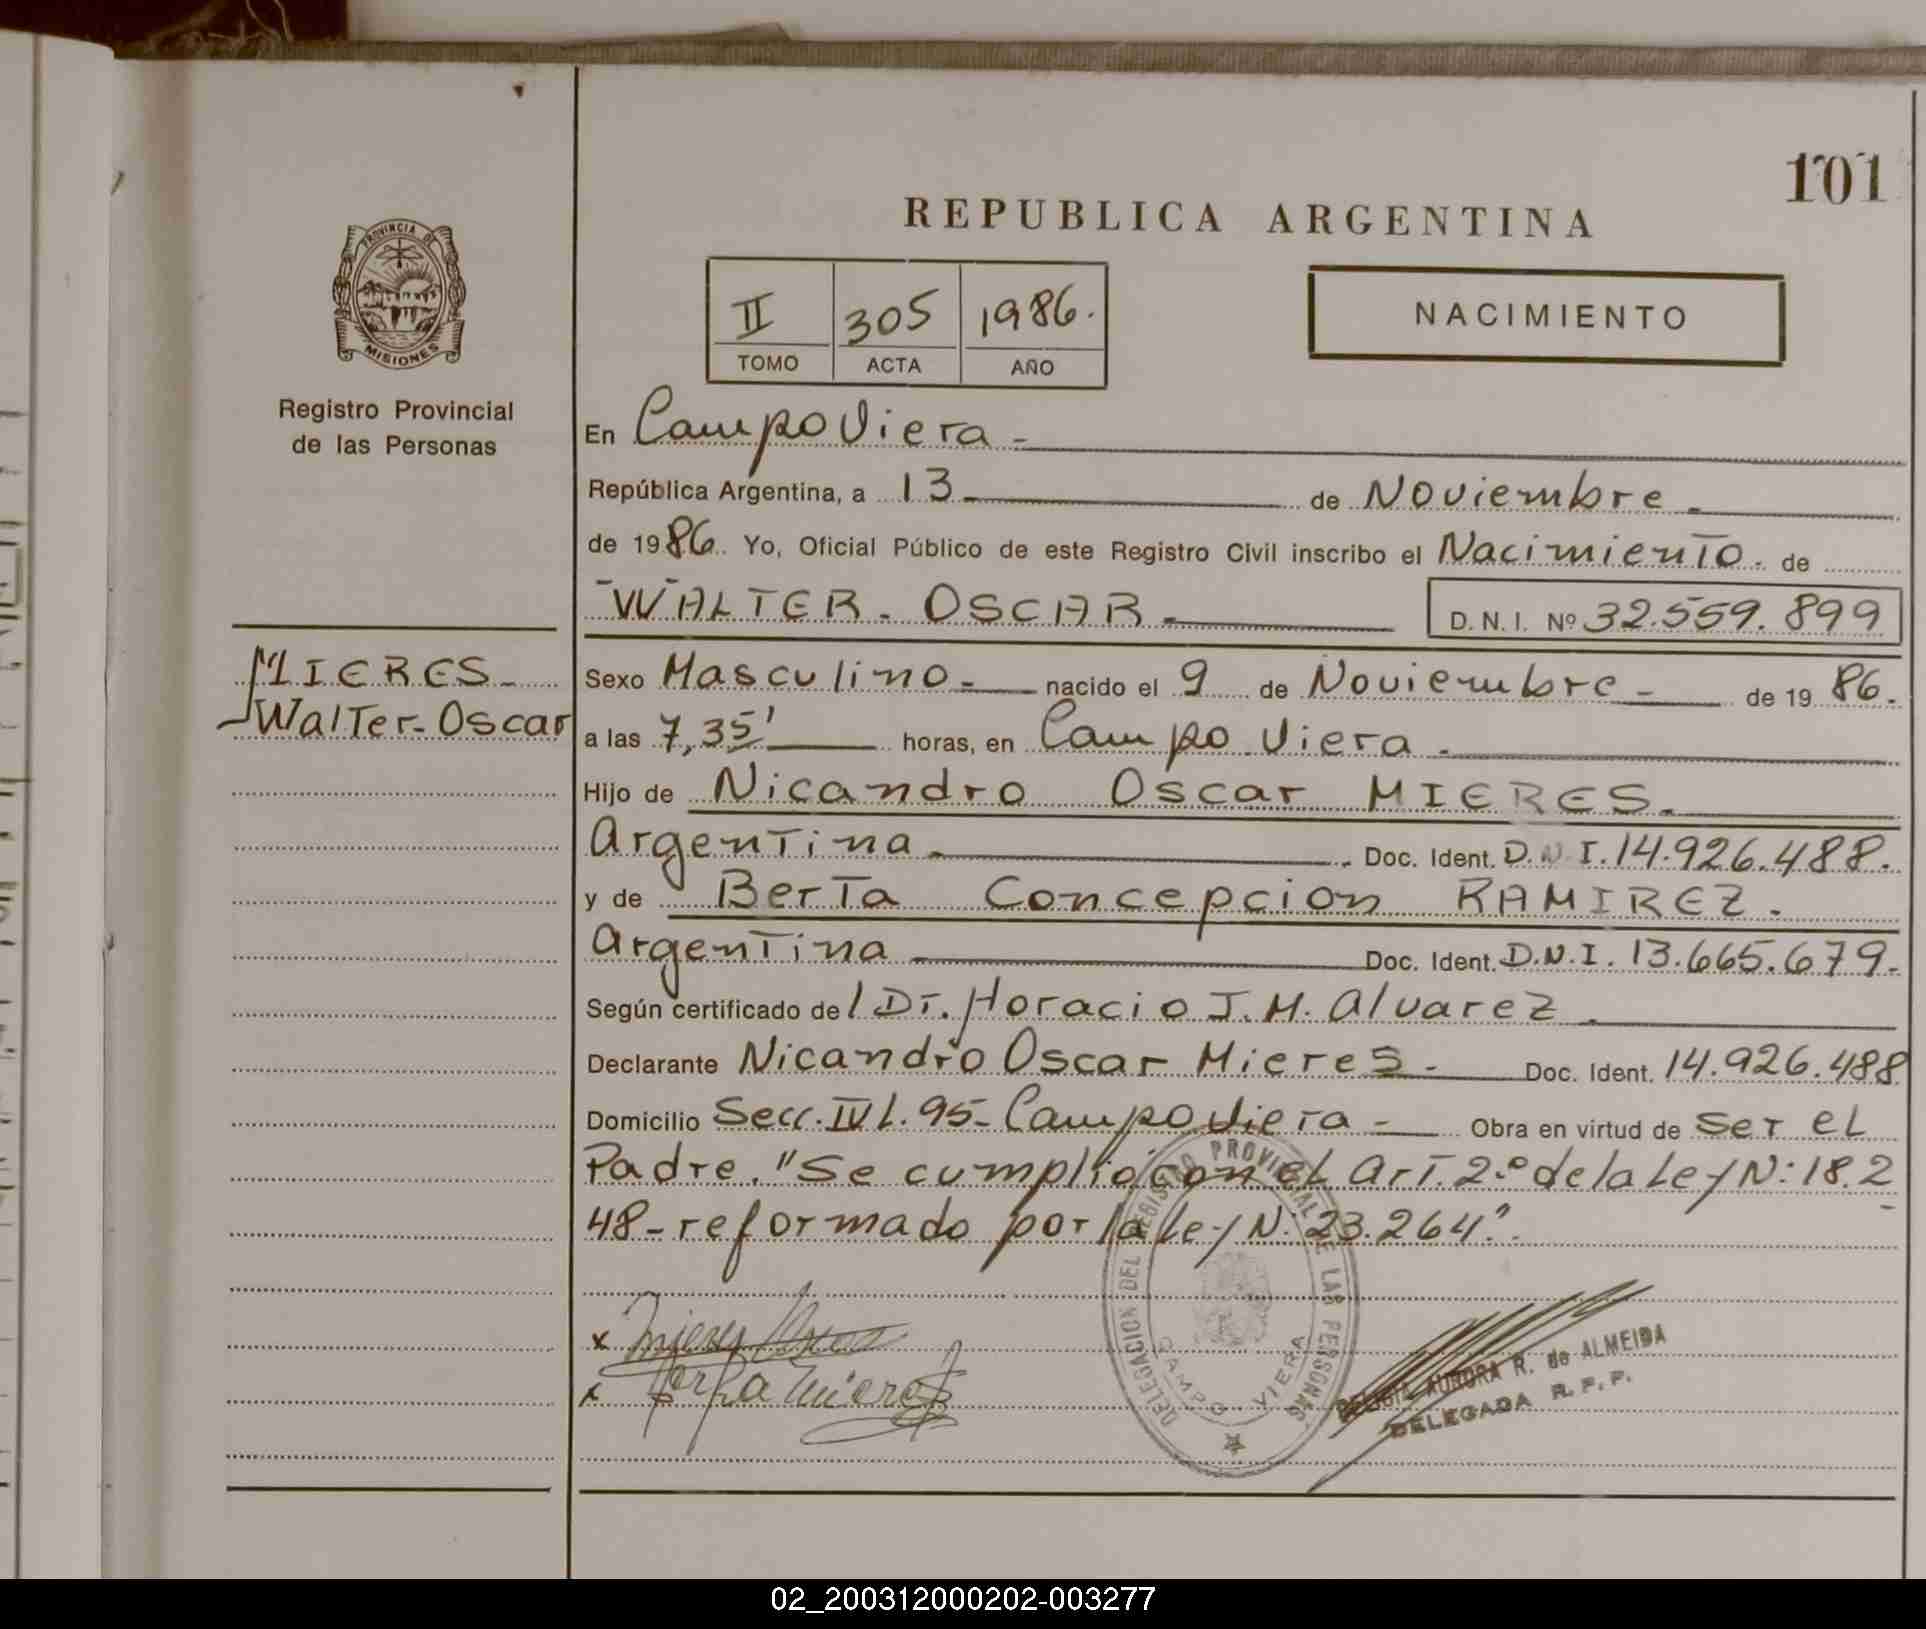 101
REPUBLICA ARGENTINA
PROVINCIA DE
MISIONES
II 305 1986.
TOMO ACTA AÑO
NACIMIENTO
Registro Provincial
de las Personas
En Campo Viera -
República Argentina, a 13 de Noviembre.
de 1986. Yo, Oficial Público de este Registro Civil inscribo el Nacimiento. de
WALTER. OSCAR.
D.N.I. Nº 32.559.899
MIERES-
Walter-Oscar
Sexo Masculino- nacido el 9 de Noviembre- de 1986.
a las 7,35' horas, en Campo Viera.
Hijo de Nicandro Oscar MIERES.
Argentina. Doc. Ident. D.N.I. 14.926.488.
y de Berta Concepcion RAMIREZ.
Argentina Doc. Ident. D.N.I. 13.665.679.-
Según certificado del Dr. Horacio J.M. Alvarez.
Declarante Nicandro Oscar Mieres- Doc. Ident. 14.926.488
Domicilio Secc. IV L. 95- Campo Viera- Obra en virtud de ser el
Padre. "Se cumplió con el Art. 2º de la Ley N: 18.2
48-reformado por la Ley N: 23.264".
DELEGACION DEL REGISTRO PROVINCIAL DE LAS PERSONAS
CAMPO VIERA
x Mieres Oscar
x Berta Mieres
AURORA R. de ALMEIDA
DELEGADA R.P.P.
02_200312000202-003277